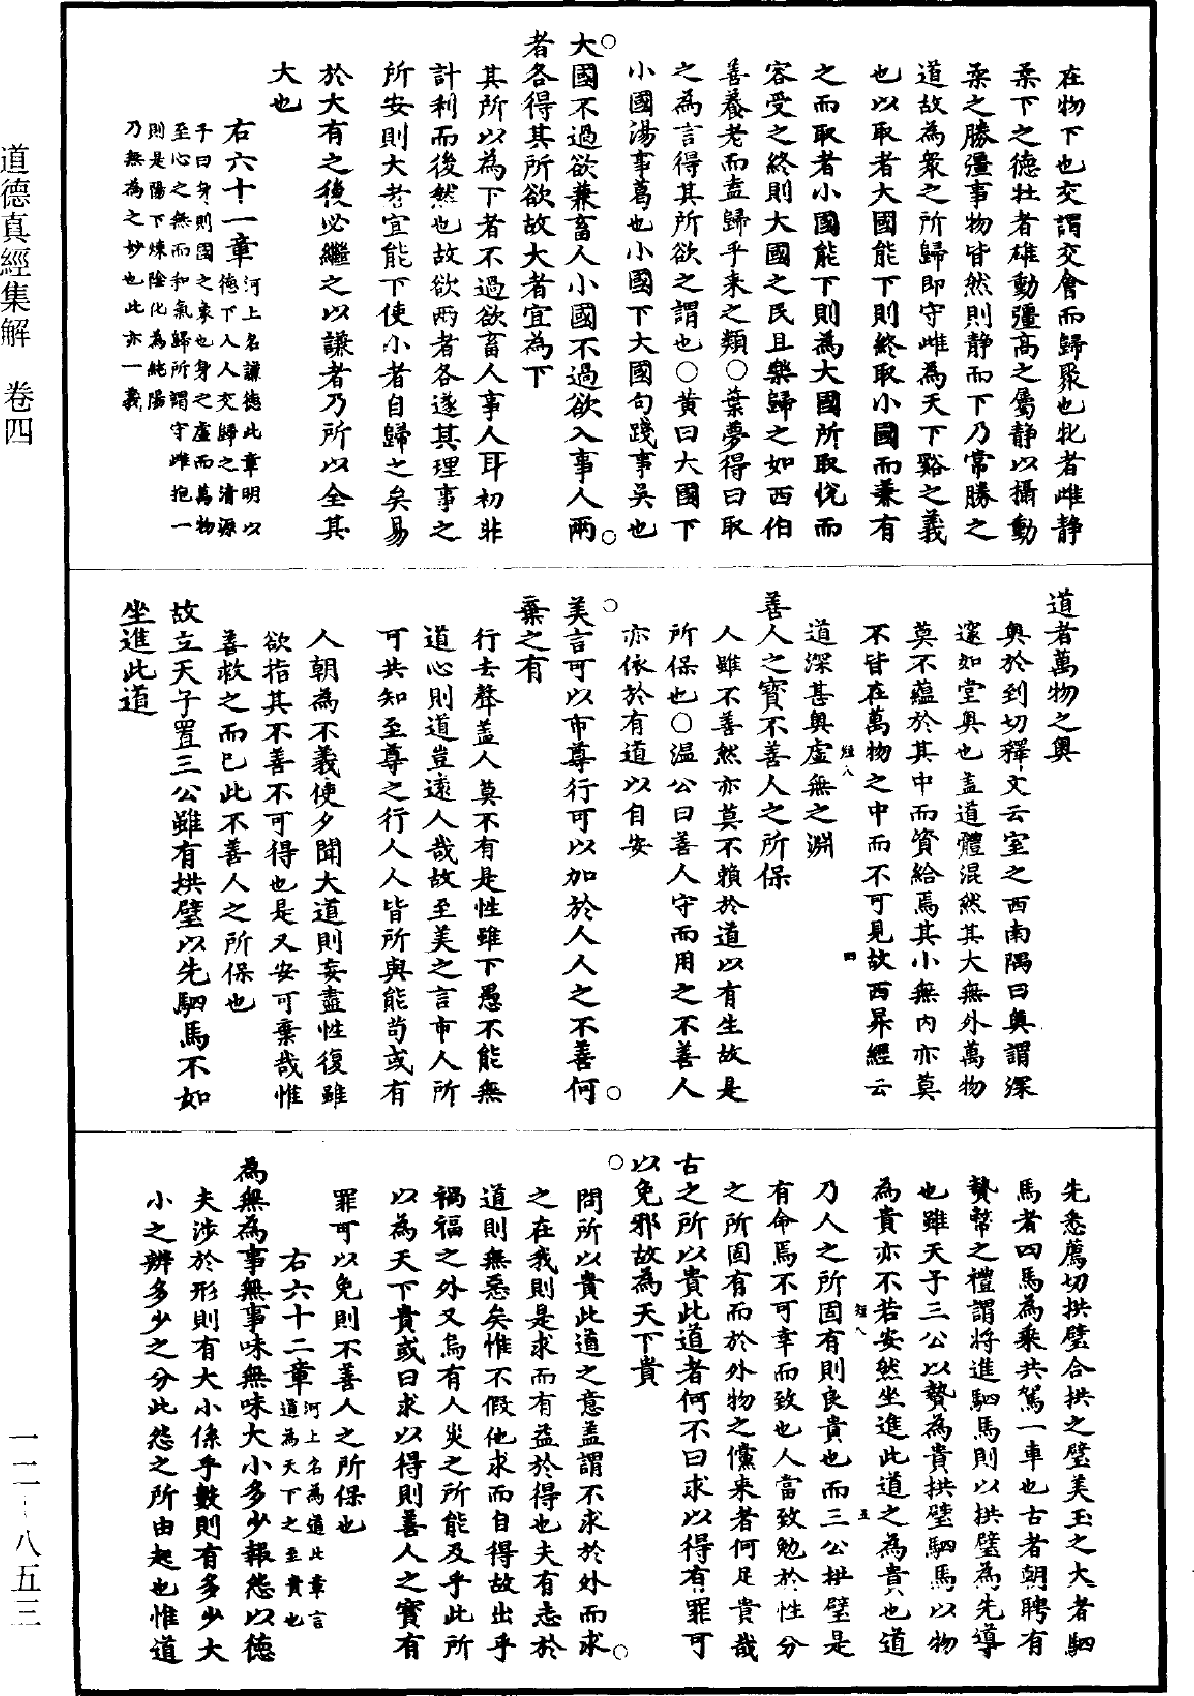 道德真經集解　卷四
一二—八五三
在物下也交謂交會而歸聚也牝者雌靜
柔下之德牡者雄動彊高之屬靜以攝動
柔之勝彊事物皆然則靜而下乃常勝之
道故為衆之所歸即守雌為天下谿之義
也以取者大國能下則終取小國而兼有
之而取者小國能下則為大國所取悅而
容受之終則大國之民且樂歸之如西伯
善養老而盍歸乎来之類○葉夢得曰取
之為言得其所欲之謂也○黄曰大國下
小國湯事葛也小國下大國句踐事吳也
○大國不過欲兼畜人小國不過欲入事人兩○
者各得其所欲故大者宜為下
其所以為下者不過欲畜人事人耳初非
計利而後然也故欲兩者各遂其理事之
所安則大者宜能下使小者自歸之矣易
於大有之後必繼之以謙者乃所以全其
大也
右六十一章河上名謙德此章明以
德下人人交歸之清源
子曰身則國之象也身之虛而萬物
至心之無而和氣歸所謂守雌抱一
則是陽下煉陰化為純陽
乃無為之妙也此亦一義
道者萬物之奥
奥於到切釋文云室之西南隅曰奥謂深
邃如堂奥也盖道體混然其大無外萬物
莫不蘊於其中而資給焉其小無内亦莫
不皆在萬物之中而不可見故西昇經云
短八　四
道深甚奥虛無之淵
善人之寳不善人之所保
人雖不善然亦莫不賴於道以有生故是
所保也○温公曰善人守而用之不善人
亦依於有道以自安
○美言可以市尊行可以加於人人之不善何○
棄之有
行去聲盖人莫不有是性雖下愚不能無
道心則道豈遠人哉故至美之言市人所
可共知至尊之行人人皆所與能苟或有
人朝為不義使夕聞大道則妄盡性復雖
欲指其不善不可得也是又安可棄哉惟
善救之而已此不善人之所保也
故立天子置三公雖有拱璧以先駟馬不如
坐進此道
先悉薦切拱璧合拱之璧美玉之大者駟
馬者四馬為乘共駕一車也古者朝聘有
贄幣之禮謂將進駟馬則以拱璧為先導
也雖天子三公以贄為貴拱璧駟馬以物
為貴亦不若安然坐進此道之為貴也道
短八　五
乃人之所固有則良貴也而三公拱璧是
有命焉不可幸而致也人當致勉於性分
之所固有而於外物之儻来者何足貴哉
古之所以貴此道者何不曰求以得有罪可
○以免邪故為天下貴○
問所以貴此道之意盖謂不求於外而求
之在我則是求而有益於得也夫有志於
道則無惡矣惟不假他求而自得故出乎
禍福之外又烏有人災之所能及乎此所
以為天下貴或曰求以得則善人之寳有
罪可以免則不善人之所保也
右六十二章河上名為道此章言
道為天下之至貴也
為無為事無事味無味大小多少報怨以德
夫涉於形則有大小係乎數則有多少大
小之辨多少之分此怨之所由起也惟道